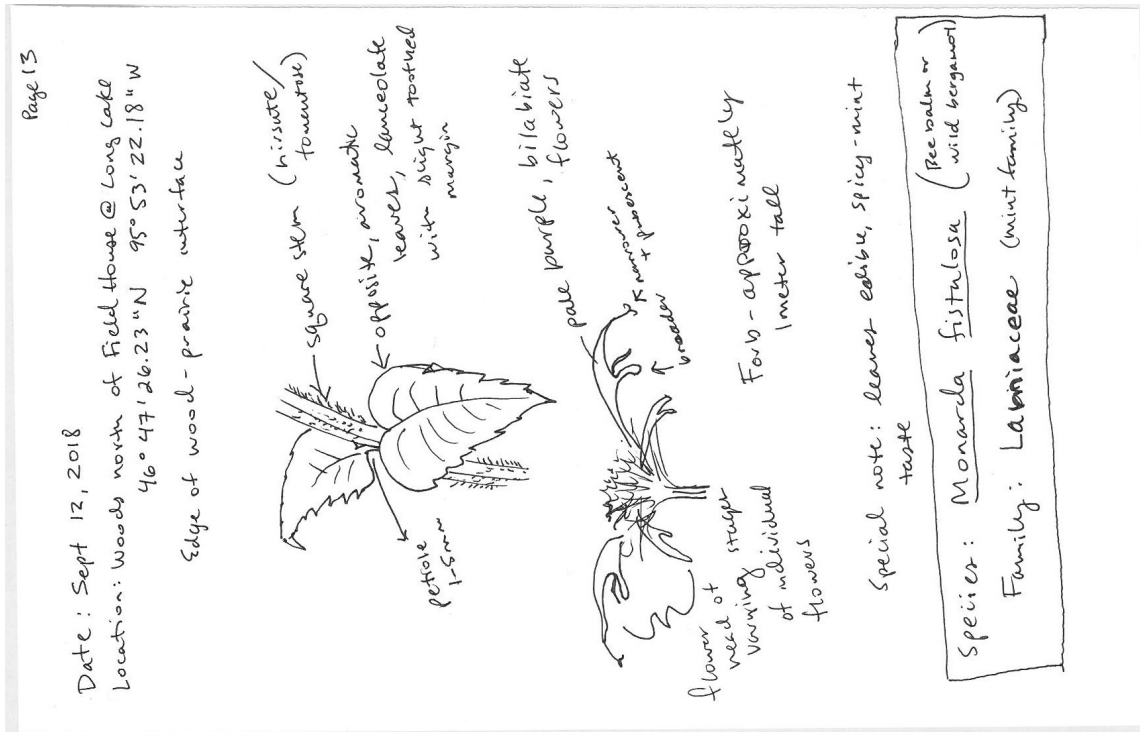 Page 13
Date: Sept 12, 2018
Location: Woods north of Field House @ Long Lake
46° 47' 26.23" N 95° 53' 22.18" W
Edge of wood-prairie interface
square stem (hirsute/
tomentose)
opposite, aromatic
leaves, lanceolate
with slight toothed
margin
petiole
1-5mm
pale purple, bilabiate
flowers
narrower
+ pubescent
broader
flower
head of
varying stages
of individual
flowers
Forb - approximately
1 meter tall
Special note: leaves edible, spicy-mint
taste
Species: Monarda fistulosa (Bee balm or
wild bergamot)
Family: Lamiaceae (mint family)